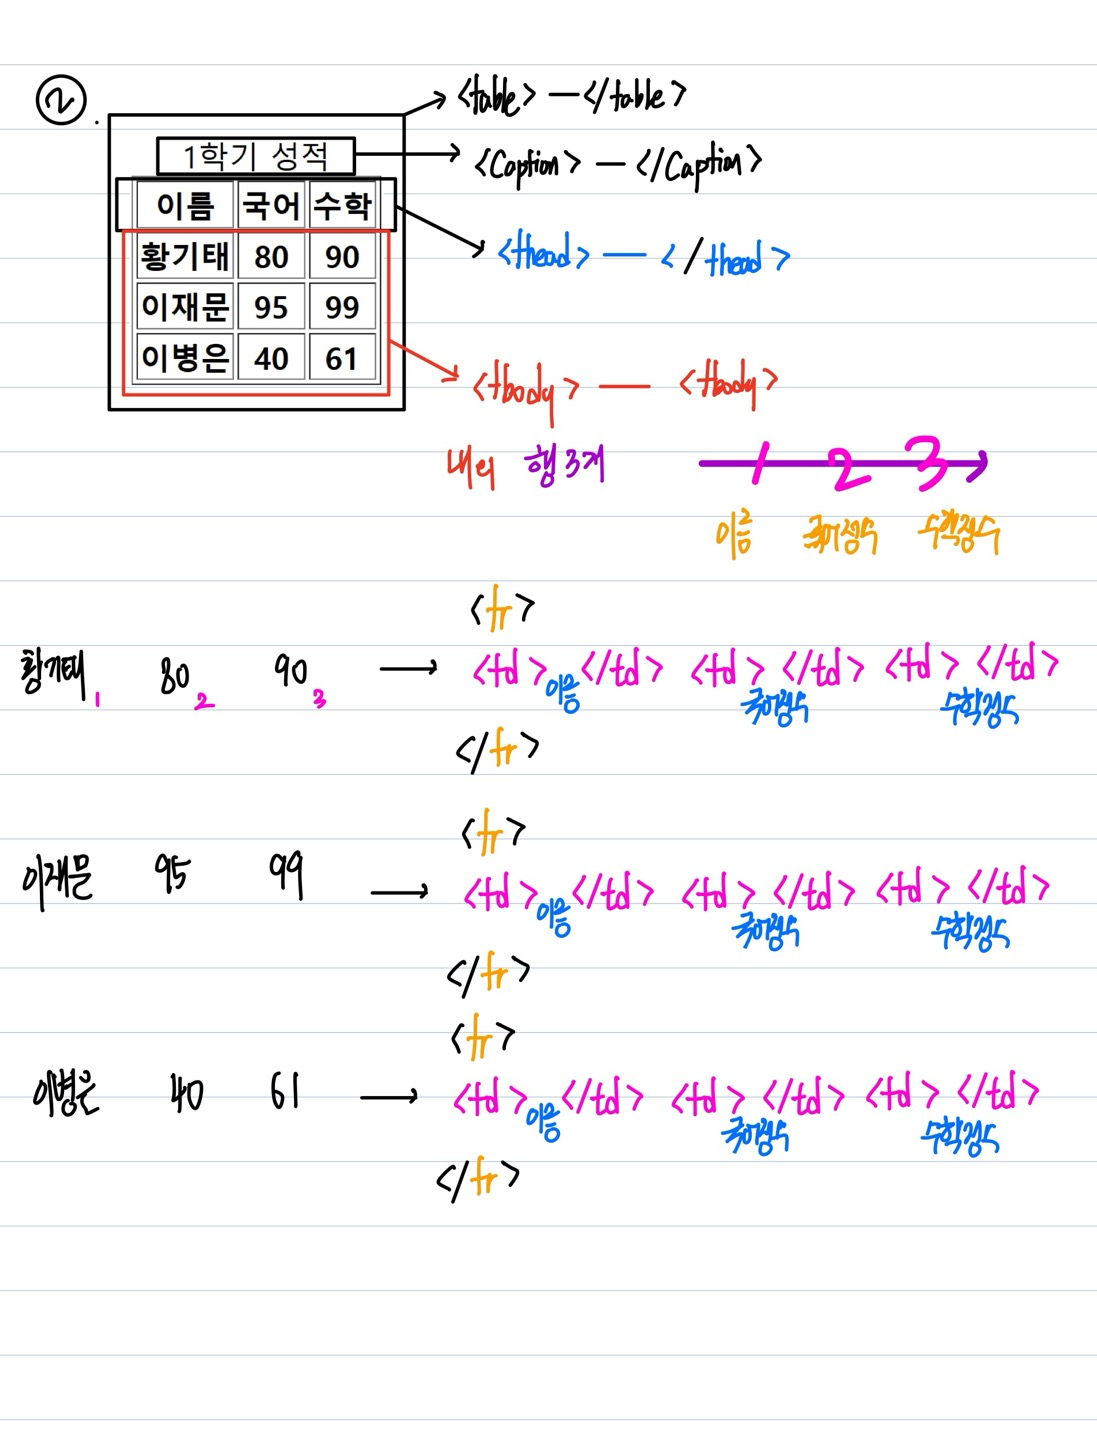 ②.
<table> — </table>
1학기 성적
<Caption> — </Caption>
이름 국어 수학
<thead> — </thead>
황기태 80 90
이재문 95 99
이병은 40 61
<tbody> — <tbody>
내의 행 3개
1 2 3
이름 국어점수 수학점수
<tr>
황기태 1 80 2 90 3 → <td> 이름 </td> <td> 국어점수 </td> <td> 수학점수 </td>
</tr>
<tr>
이재문 95 99 → <td> 이름 </td> <td> 국어점수 </td> <td> 수학점수 </td>
</tr>
<tr>
이병은 40 61 → <td> 이름 </td> <td> 국어점수 </td> <td> 수학점수 </td>
</tr>